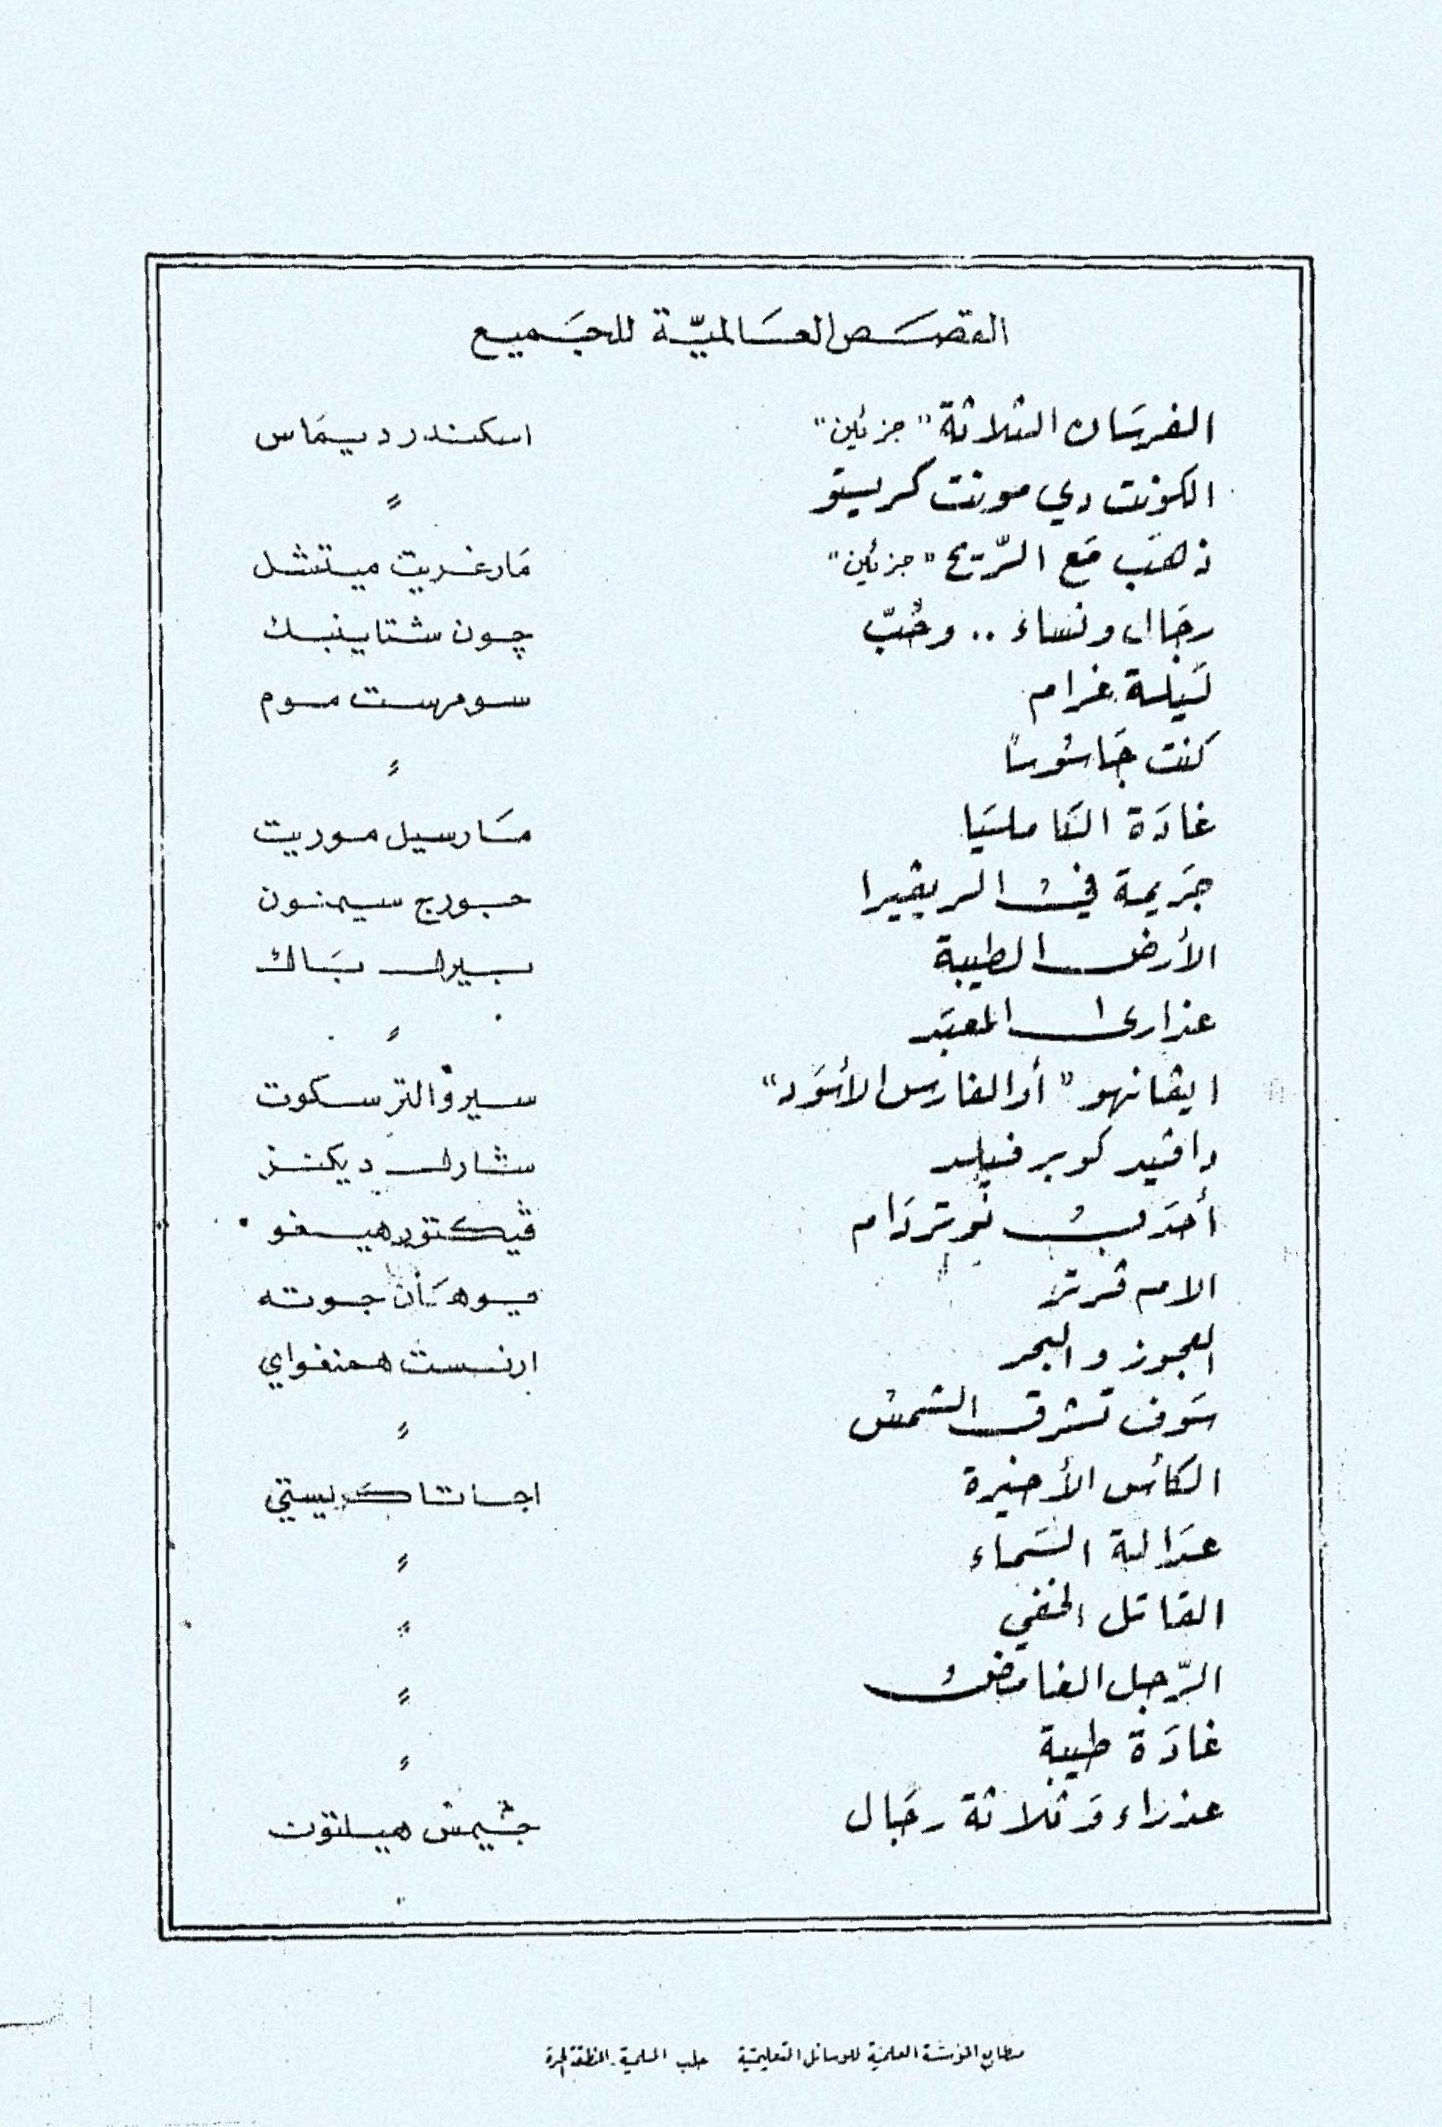 القصَص العَالميّة للجَميع
الفرسَان الثلاثة "جزئين" اسكندر ديمَاس
الكونت دي مونت كريستو "
ذهَب مَع الرّيح "جزئين" مَارغريت ميتشل
رجَال ونساء .. وحُبّ چون شتاينبك
لَيْلة غرام سومرست موم
كنت جَاسُوسًا "
غادَة الكَامليَا مَارسيل موريت
جَريمة في الريڤيرا جورج سيمنون
الأرض الطيبة بيرل بَاك
عذارى المعبَد "
ايڤانهو "أو الفارس الأسوَد" سير والتر سكوت
داڤيد كوبر فيلد شارل ديكنز
أحدَب نوتردَام ڤيكتور هيغو
الام ڤرتر يوهَان جوته
العجوز والبحر ارنست همنغواي
سَوف تشرق الشمس "
الكأس الأخيرة اجاتا كريستي
عدَالة السَماء "
القاتل الخفي "
الرّجل الغامض "
غادَة طيبة "
عذراء وَثلاثة رجَال جيمس هيلتون
مطابع المؤسسة العلمية للوسائل التعليمية حلب المسلمية. المنطقة الحرة